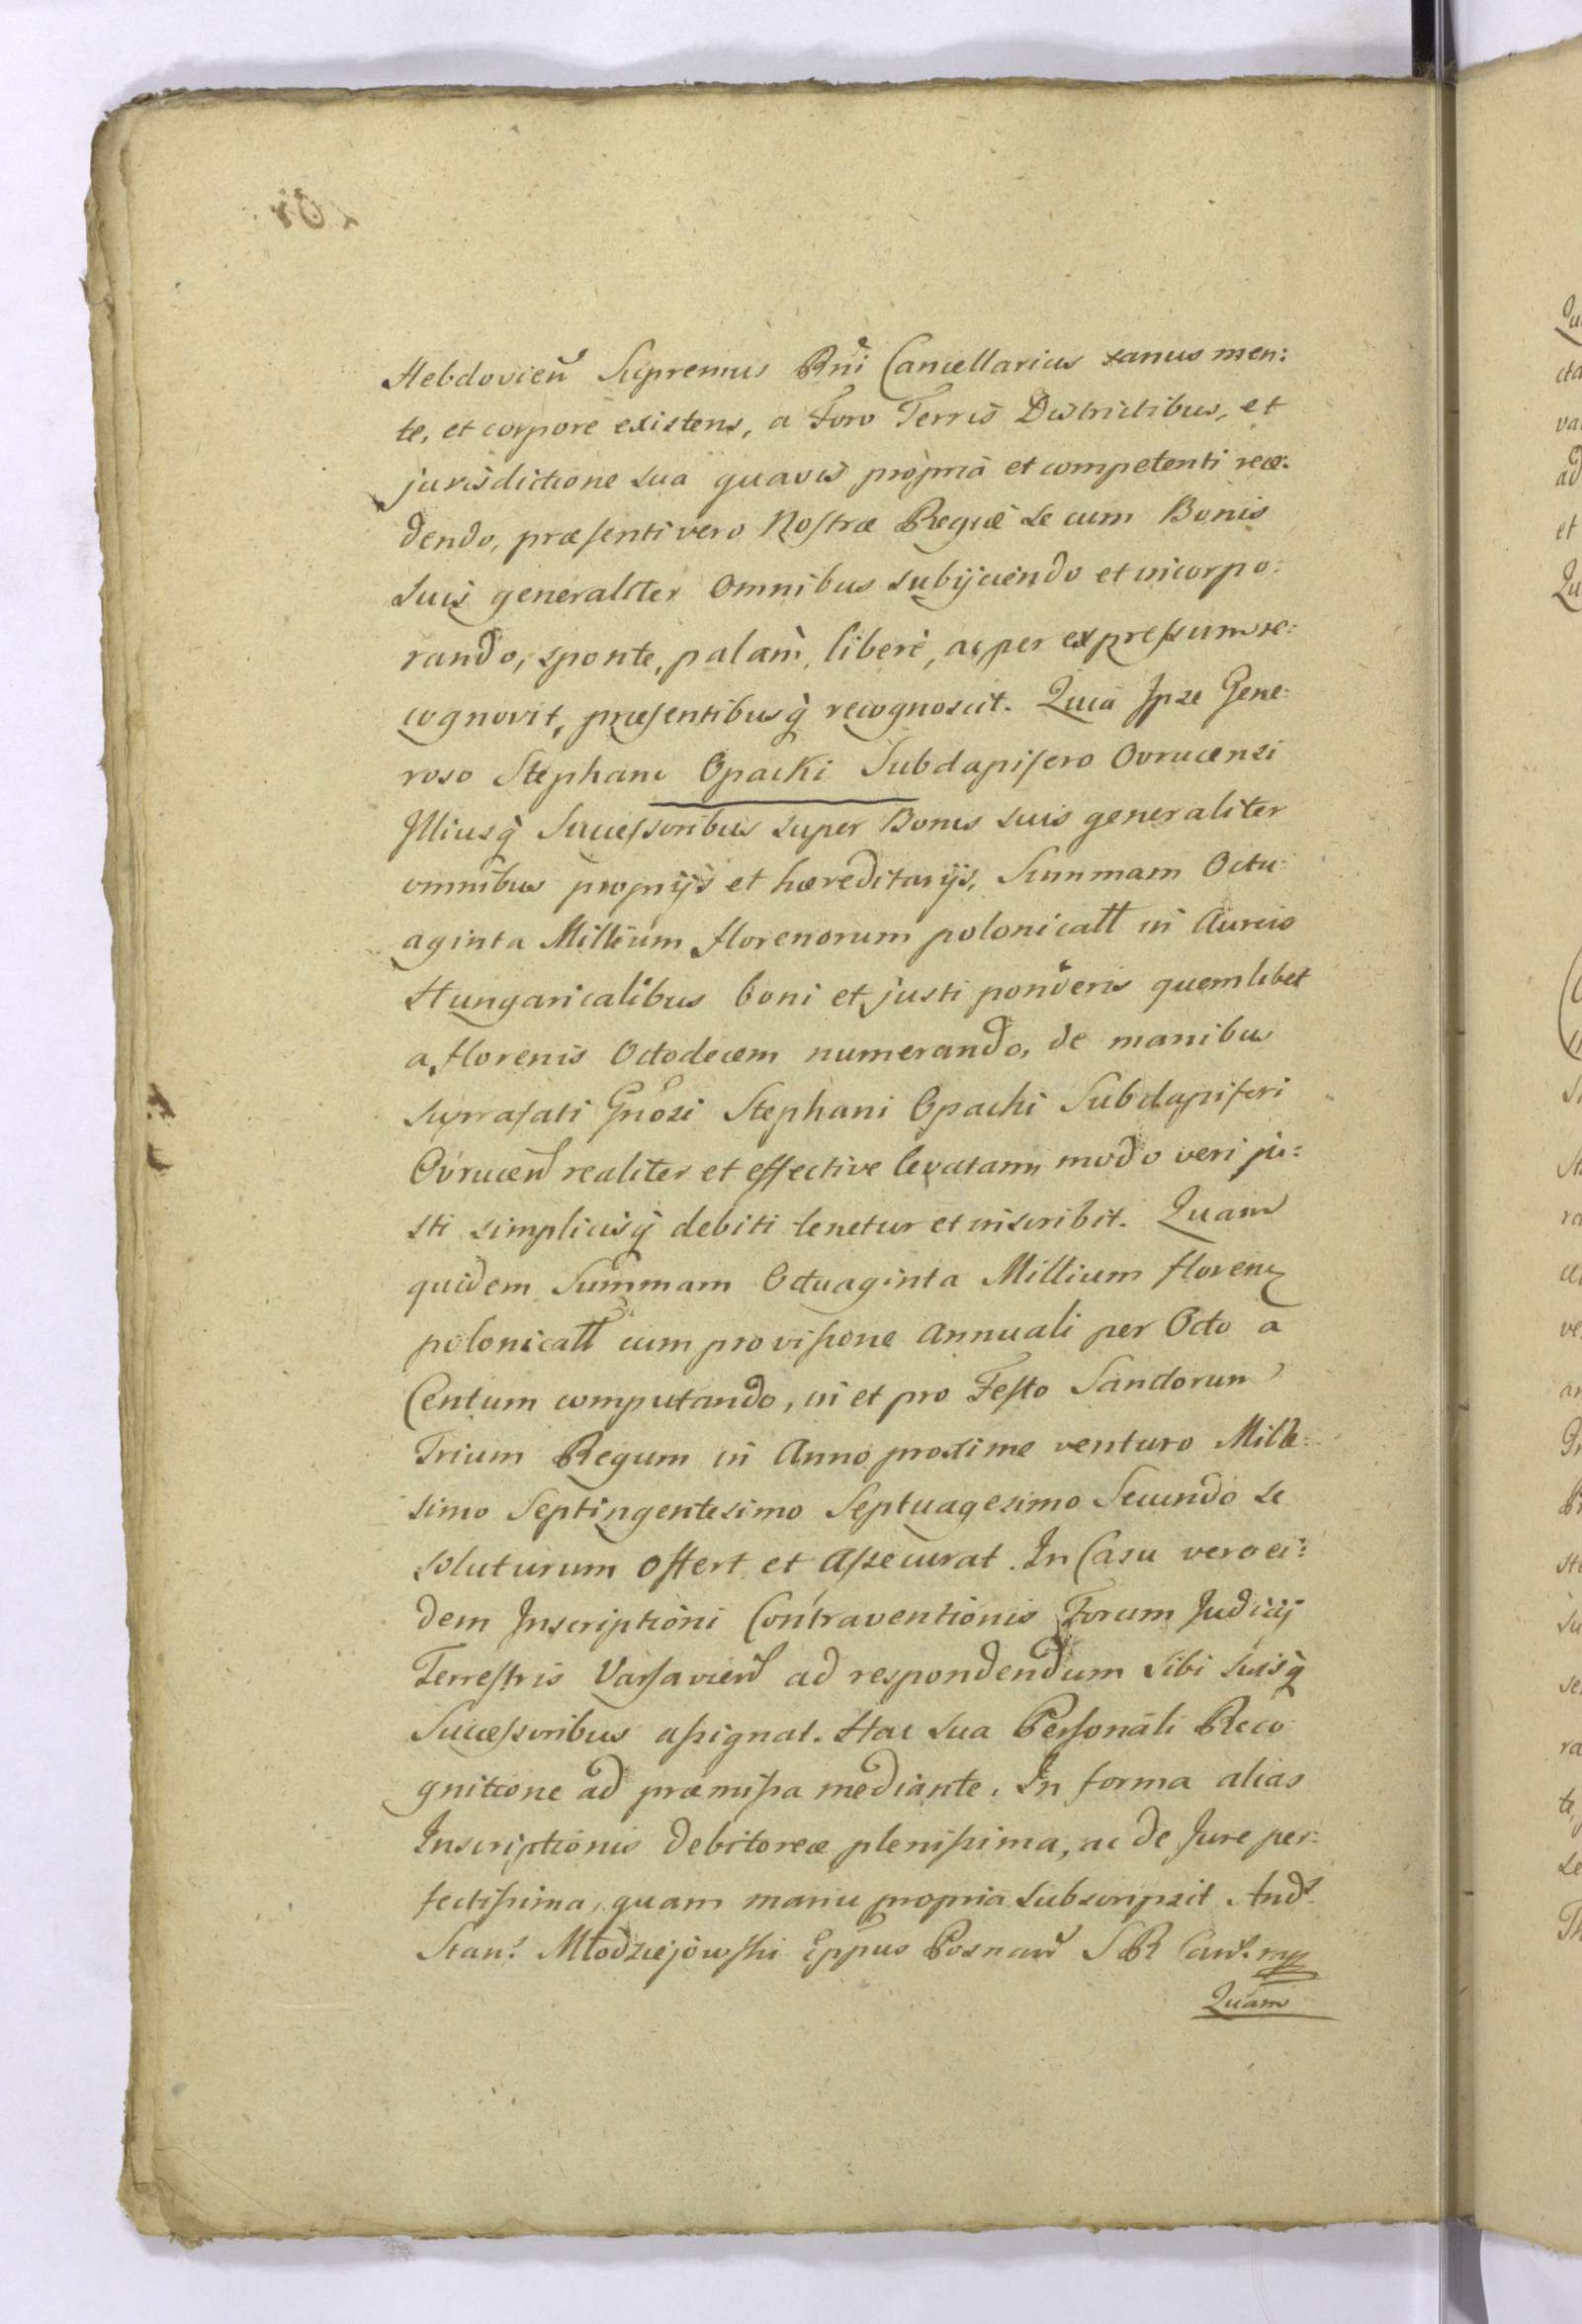 Hebdovien̄ Supremus Rn̄i Cancellarius sanus men:
te, et corpore existens, a Foro Terris Districtibus, et
jurisdictione sua quavis propria et competenti rece:
dendo, præsenti vero Nostræ Regiæ se cum Bonis
suis generaliter omnibus subijciendo et incorpo:
rando, sponte, palam, libere, ac per expressum re:
cognovit, præsentibusq̀ recognoscit. Quia Ipse Gene:
roso Stephano Opacki Subdapifero Ovrucensi
Illiusq̀ Successoribus super Bonis suis generaliter
omnibus proprijs et hæreditarijs, Summam Octu:
aginta Millium florenorum polonicall in Aureis
Hungaricalibus boni et justi ponderis quemlibet
a florenis Octodecem numerando, de manibus
suprafati Gn̄osi Stephani Opacki Subdapiferi
Ovrucen̄ realiter et effective levatam modo veri ju:
sti simplicisq̀ debiti tenetur et inscribit. Quam
quidem Summam Octuaginta Millium floren
polonicall cum provisione annuali per Octo a
Centum computando, in et pro Festo Sanctorum
Trium Regum in Anno proxime venturo Mille:
simo Septingentesimo Septuagesimo Secundo se
soluturum offert et assecurat. In Casu vero ei:
dem Inscriptioni Contraventionis Forum Judicij
Terrestris Varsavien̄ ad respondendum sibi suisq̀
Successoribus assignat. Hac sua Personali Reco
gnitione ad præmissa mediante. In forma alias
Inscriptionis debitoreæ plenissima, ac de Jure per:
fectissima, quam manu propria subscripsit And:
Stan: Młodziejowski Eppus Posnan̄ S R Can̄. mp
Quam